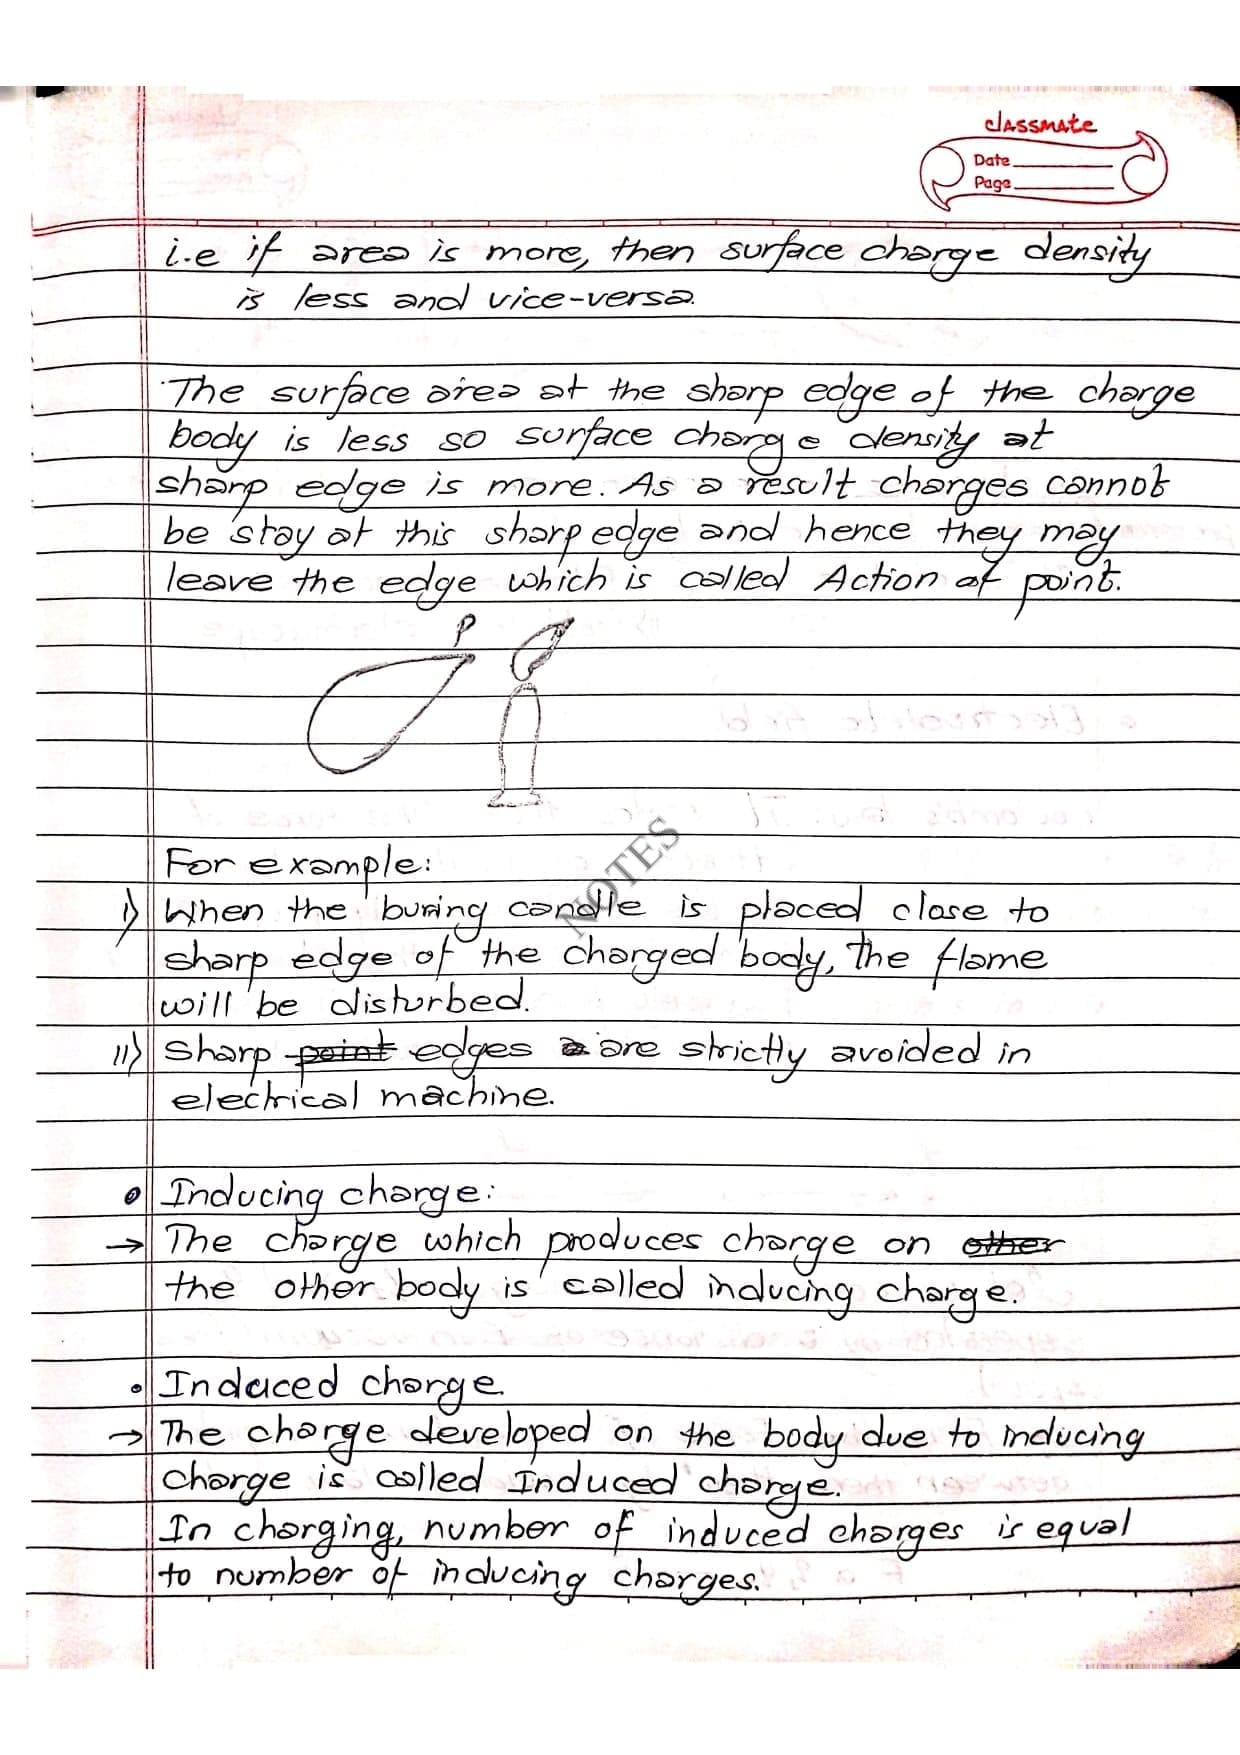 classmate
Date
Page
i.e if area is more, then surface charge density
is less and vice-versa.
The surface area at the sharp edge of the charge
body is less so surface charge density at
sharp edge is more. As a result charges cannot
be stay at this sharp edge and hence they may
leave the edge which is called Action of point.
P
NOTES
For example:
i) When the buring candle is placed close to
sharp edge of the charged body, the flame
will be disturbed.
ii) Sharp point edges are strictly avoided in
electrical machine.
Inducing charge:
→ The charge which produces charge on other
the other body is called inducing charge.
• Induced charge.
→ The charge developed on the body due to inducing
charge is called Induced charge.
In charging, number of induced charges is equal
to number of inducing charges.